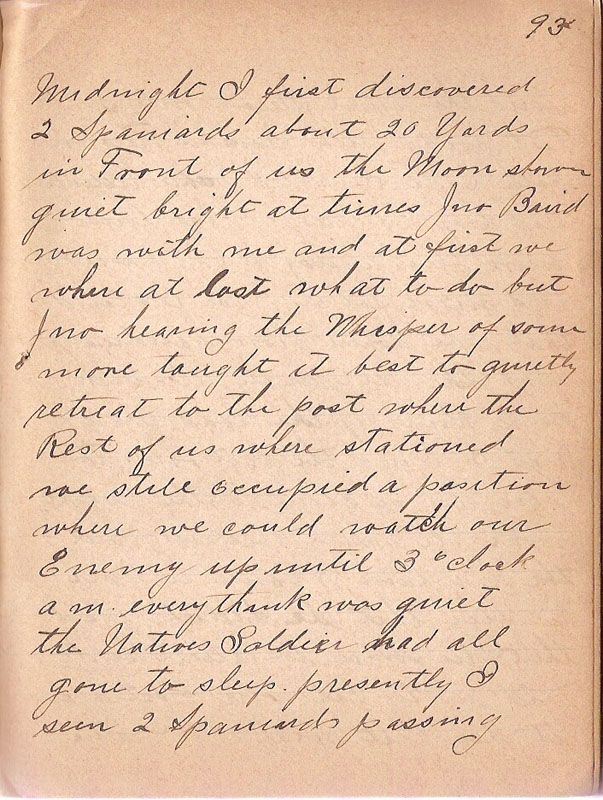 93
Midnight I first discovered
2 Spaniards about 20 Yards
in Front of us the Moon shown
quiet bright at times Jno Baird
was with me and at first we
where at lost what to do but
Jno hearing the Whisper of some
more taught it best to quietly
retreat to the post where the
Rest of us where stationed
we still occupied a position
where we could watch our
Enemy up until 3 o'clock
a m. everythank was quiet
the Natives Soldier had all
gone to sleep. presently I
seen 2 Spaniards passing